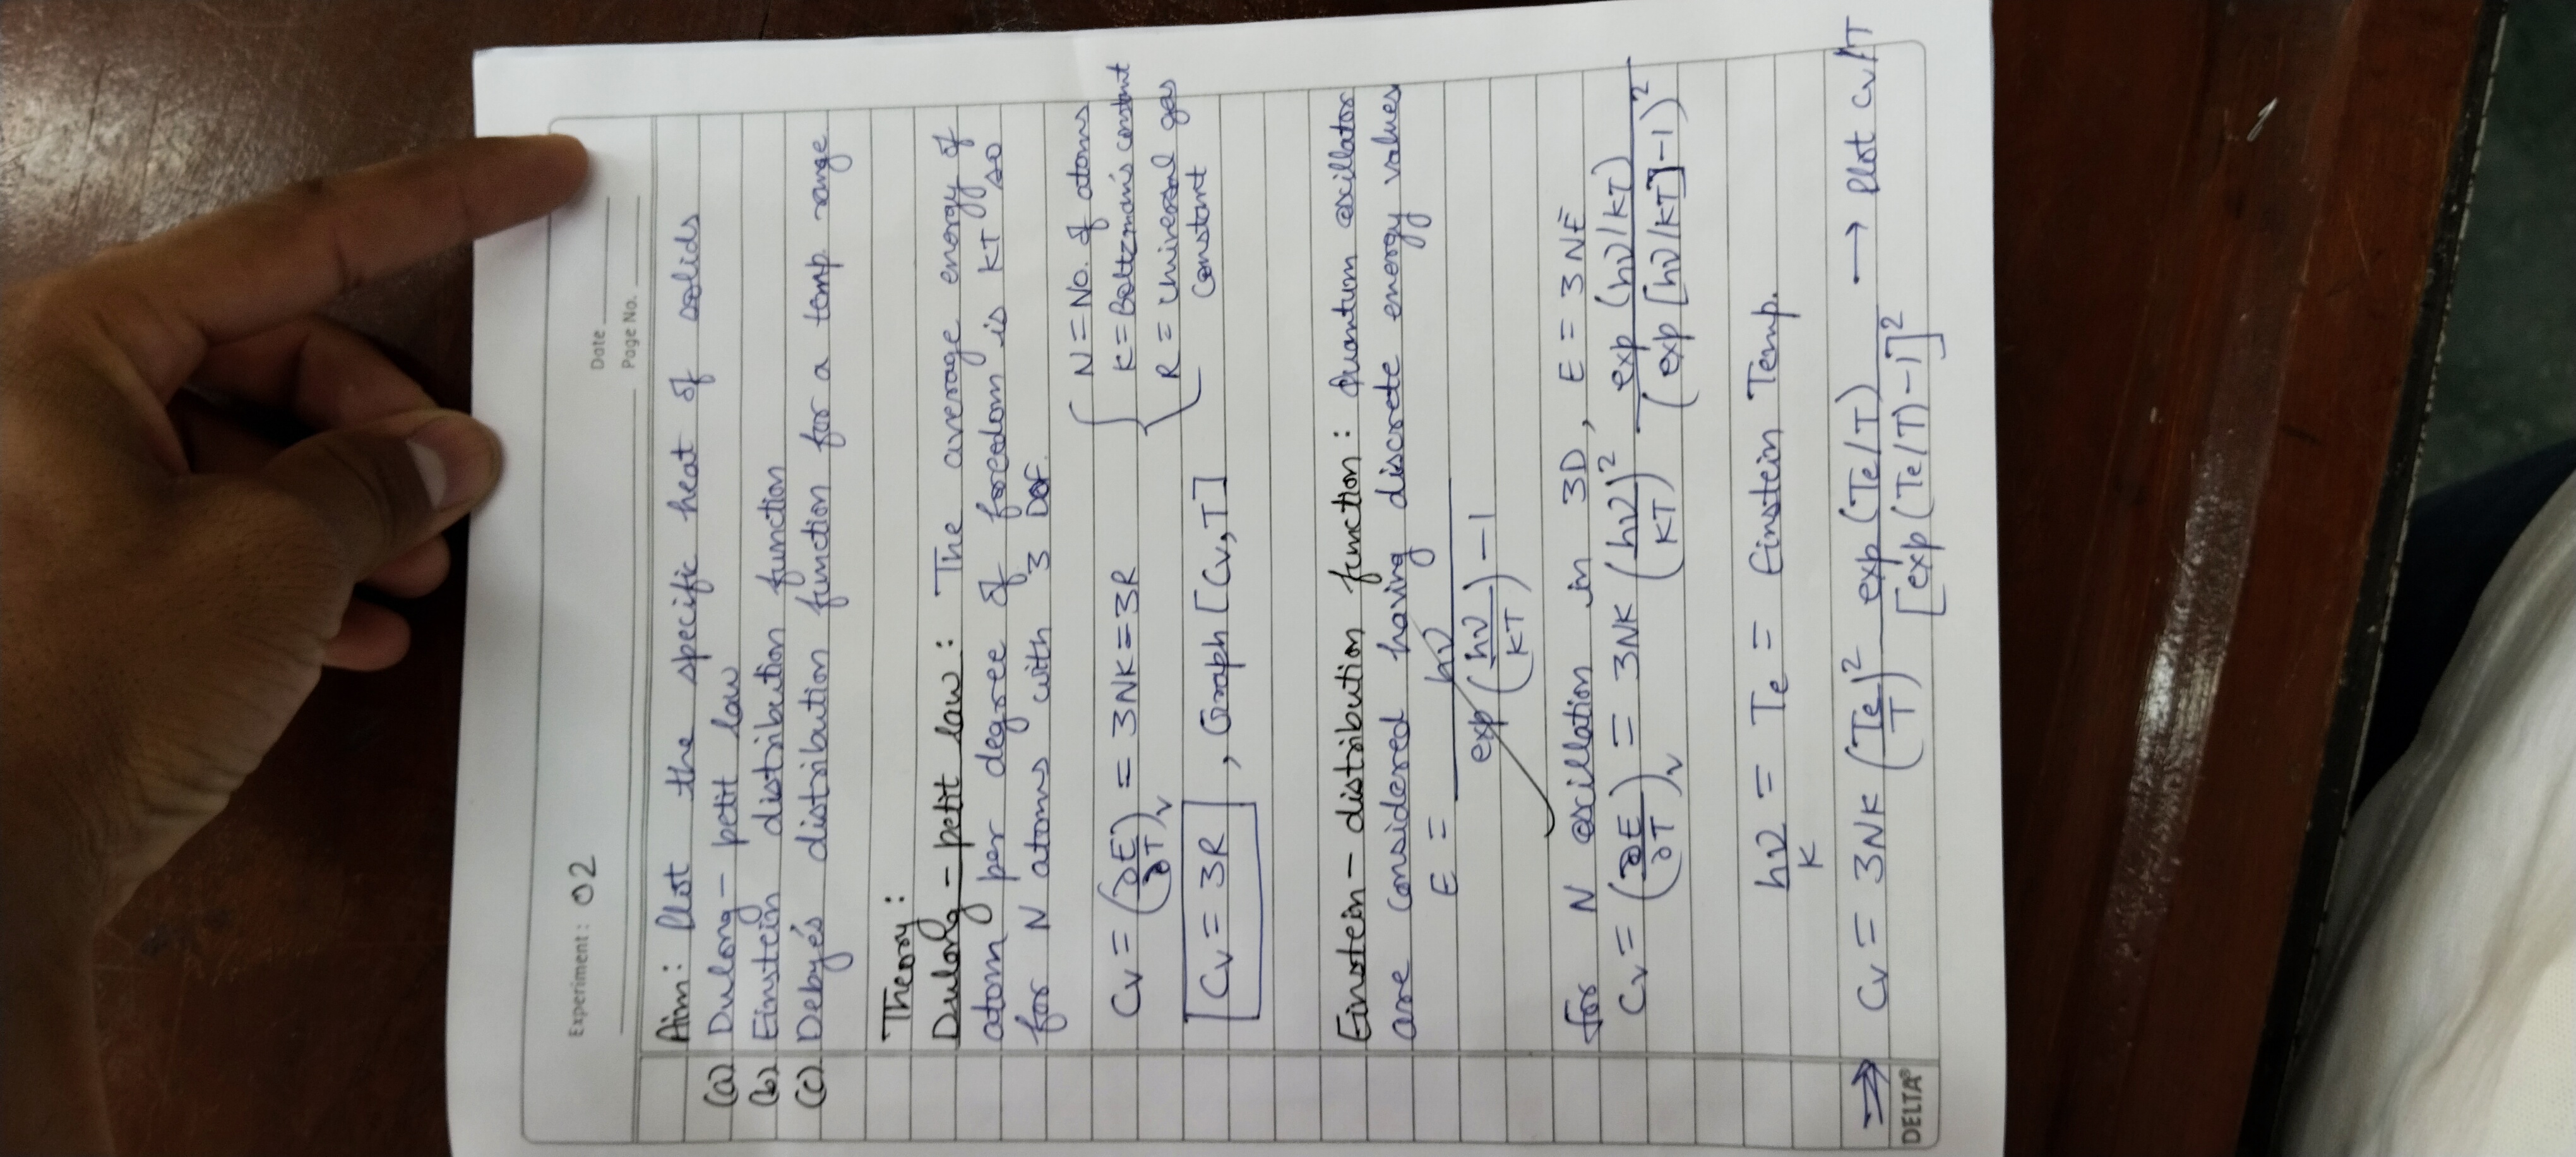 Experiment: 02
Date
Page No.
Aim: Plot the specific heat of solids
(a) Dulong-petit law
(b) Einstein distribution function
(c) Debye's distribution function for a temp. range
Theory:
Dulong-petit law: The average energy of
atom per degree of foredom is KT so
for N atoms with 3 DOF.
{ N = No. of atoms
K = Boltzman's constant
R = Universal gas
constant
Cv = (∂E/∂T)v = 3NK = 3R
Cv = 3R , Graph [Cv, T]
Einstein-distribution function: Quantum oscillator
are considered having discrete energy values
E = hν / (exp(hν/KT) - 1)
for N oscillation in 3D, E = 3NE
Cv = (∂E/∂T)v = 3NK (hν/KT)² exp(hν/KT) / (exp[hν/KT]-1)²
hν/K = Te = Einstein Temp.
⇒ Cv = 3NK (Te/T)² exp(Te/T) / [exp(Te/T)-1]² → Plot Cv/T
DELTA®